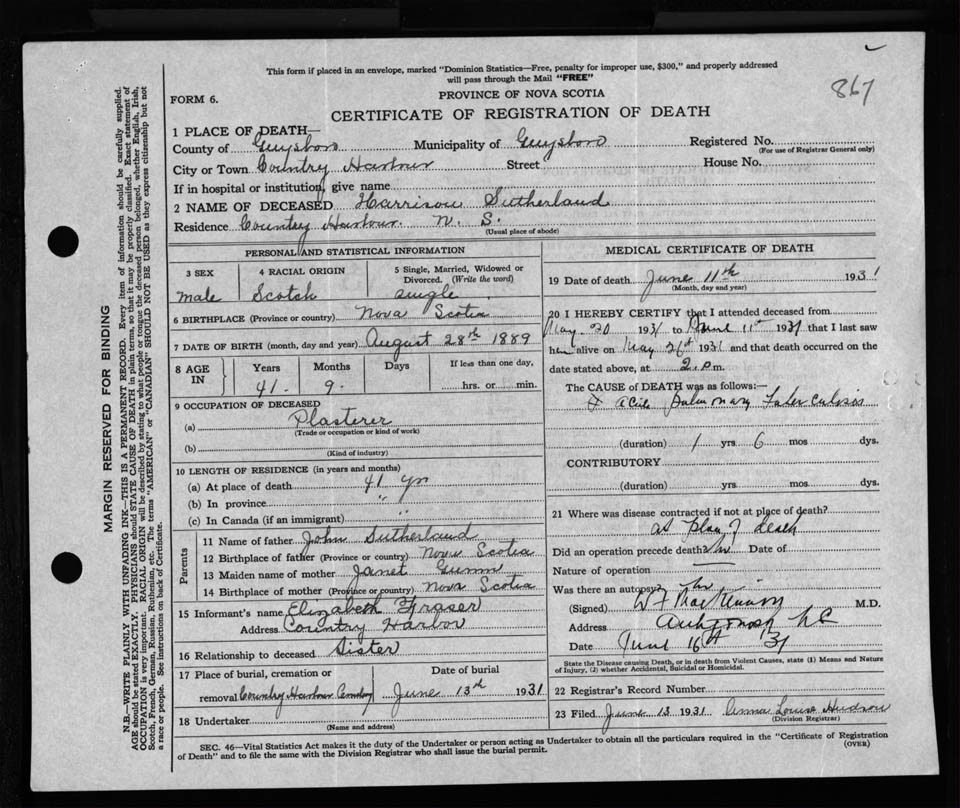 This form if placed in an envelope, marked "Dominion Statistics—Free, penalty for improper use, $300," and properly addressed
will pass through the Mail "FREE"
867
PROVINCE OF NOVA SCOTIA
FORM 6.
CERTIFICATE OF REGISTRATION OF DEATH
1 PLACE OF DEATH—
County of Guysboro Municipality of Guysboro Registered No.
(For use of Registrar General only)
City or Town Country Harbour Street House No.
If in hospital or institution, give name
2 NAME OF DECEASED Harrison Sutherland
Residence Country Harbour N. S.
(Usual place of abode)
PERSONAL AND STATISTICAL INFORMATION
3 SEX 4 RACIAL ORIGIN 5 Single, Married, Widowed or
Divorced. (Write the word)
male Scotch single
6 BIRTHPLACE (Province or country) Nova Scotia
7 DATE OF BIRTH (month, day and year) August 28th 1889
8 AGE IN Years Months Days If less than one day,
41 9 hrs. or min.
9 OCCUPATION OF DECEASED
(a) Plasterer
(Trade or occupation or kind of work)
(b)
(Kind of industry)
10 LENGTH OF RESIDENCE (in years and months)
(a) At place of death 41 yr
(b) In province "
(c) In Canada (if an immigrant) "
Parents
11 Name of father John Sutherland
12 Birthplace of father (Province or country) Nova Scotia
13 Maiden name of mother Janet Gunn
14 Birthplace of mother (Province or country) Nova Scotia
15 Informant's name Elizabeth Fraser
Address Country Harbor
16 Relationship to deceased Sister
17 Place of burial, cremation or Date of burial
removal Country Harbour June 13th 1931
18 Undertaker
(Name and address)
MEDICAL CERTIFICATE OF DEATH
19 Date of death June 11th 1931
(Month, day and year)
20 I HEREBY CERTIFY that I attended deceased from
May 20 1931 to June 11th 1931 that I last saw
him alive on May 26th 1931 and that death occurred on the
date stated above, at 2 p.m.
The CAUSE of DEATH was as follows:—
Pulmonary Tuberculosis
(duration) 1 yrs 6 mos dys.
CONTRIBUTORY
(duration) yrs mos dys.
21 Where was disease contracted if not at place of death?
at place of death
Did an operation precede death? no Date of
Nature of operation
Was there an autopsy? no
(Signed) M.D.
Address
Date June 16th 31
State the Disease causing Death, or in death from Violent Causes, state (1) Means and Nature
of Injury, (2) whether Accidental, Suicidal or Homicidal.
22 Registrar's Record Number
23 Filed June 13 1931 Anna Louise Hudson
(Division Registrar)
SEC. 46—Vital Statistics Act makes it the duty of the Undertaker or person acting as Undertaker to obtain all the particulars required in the "Certificate of Registration
of Death" and to file the same with the Division Registrar who shall issue the burial permit. (OVER)
MARGIN RESERVED FOR BINDING
N.B.—WRITE PLAINLY WITH UNFADING INK—THIS IS A PERMANENT RECORD. Every item of information should be carefully supplied.
AGE should be stated EXACTLY. PHYSICIANS should STATE CAUSE OF DEATH in plain terms, so that it may be properly classified. Exact statement of
OCCUPATION is very important. RACIAL ORIGIN will be described by stating to what people or tongue the deceased person belonged, whether English, Irish,
Scotch, French, German, Russian, Ruthenian, etc. The terms "AMERICAN" or "CANADIAN" SHOULD NOT BE USED as they express citizenship but not
a race or people. See instructions on back of Certificate.